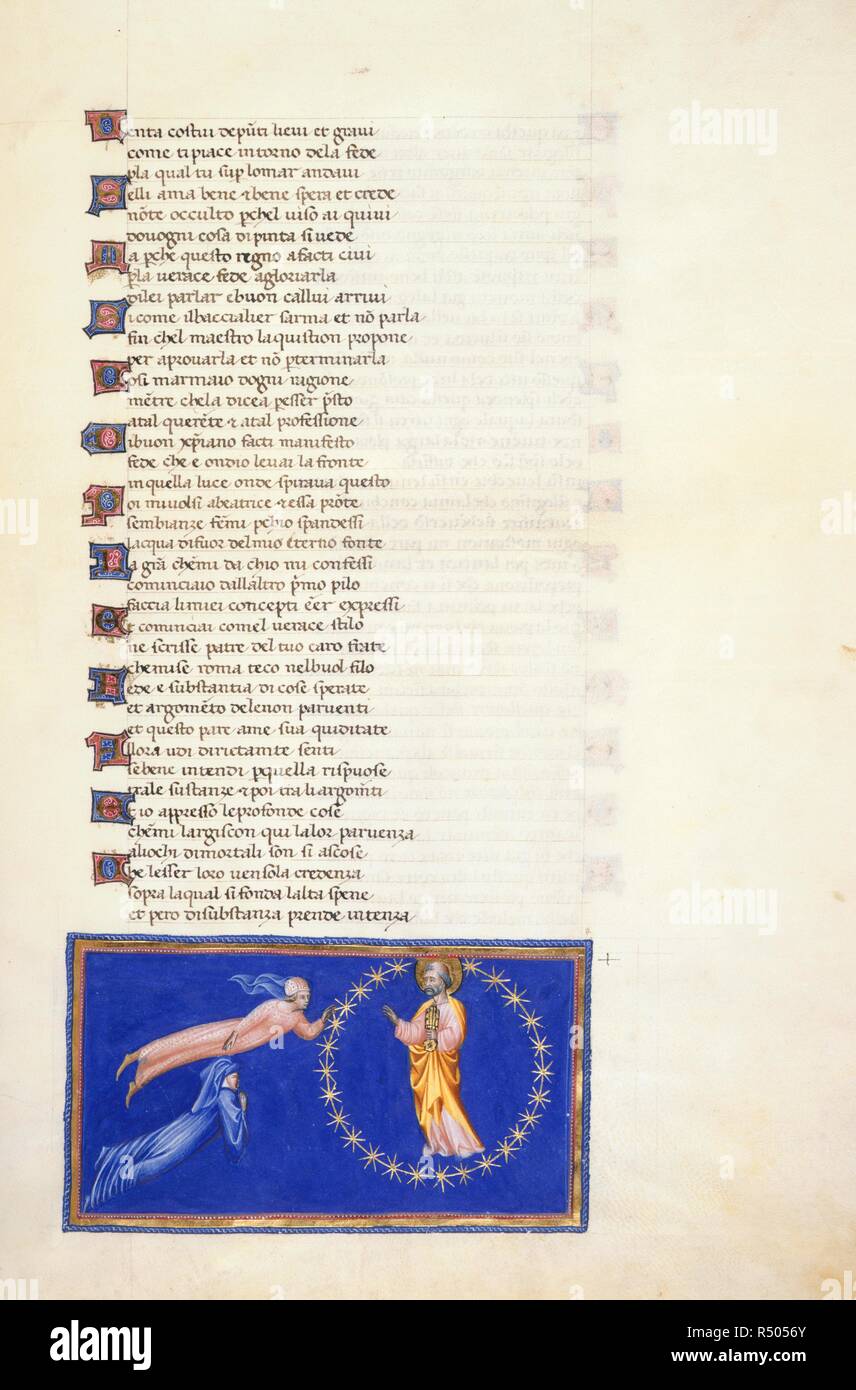 Tenta costui de pūti lievi et gravi
come ti piace intorno dela fede
p̱la qual tu sup̱ lo mar andavi
Selli ama bene ⁊ bene spera et crede
nōte occulto p̱chel viso ai quivi
dovogni cosa dipinta si vede
Ma p̱che questo regno a facti civi
p̱la verace fede a gloriarla
dilei parlar e buon callui arrivi
Sicome il baccialier sarma et nō parla
fin chel maestro la quistion propone
per aprovarla et nō p̱ terminarla
Cosi marmaio dogni ragione
mētre chela dicea p̱ esser p̄sto
a tal querēte ⁊ a tal professione
Di buon xp̄iano facti manifesto
fede che e ondio levai la fronte
in quella luce onde spirava questo
Poi mi volsi a beatrice ⁊ essa prōte
sembianze fēmi p̱chio spandessi
lacqua di fuor del mio eterno fonte
La grā chēmi da chio mi confessi
cominciaio dallaltro p̄mo pilo
faccia li miei concepti eēr expressi
Et cominciai comel verace stilo
ne scrisse patre del tuo caro frate
che mise roma teco nel buol filo
Fede e substantia di cose sperate
et argomēto dele non parventi
et questo pare a me sua quiditate
Allora udi dirictamīte senti
se bene intendi p̱ quella rispuose
tra le sustanze ⁊ poi tra li argomīti
Et io appresso le profonde cose
chēmi largiscon qui la lor parvenza
ali ochi di mortali son si ascose
Che lesser loro ven sola credenza
sopra la qual si fonda lalta spene
et pero di substanza prende intenza
alamy
alamy
alamy
alamy
Image ID: R5056Y
www.alamy.com